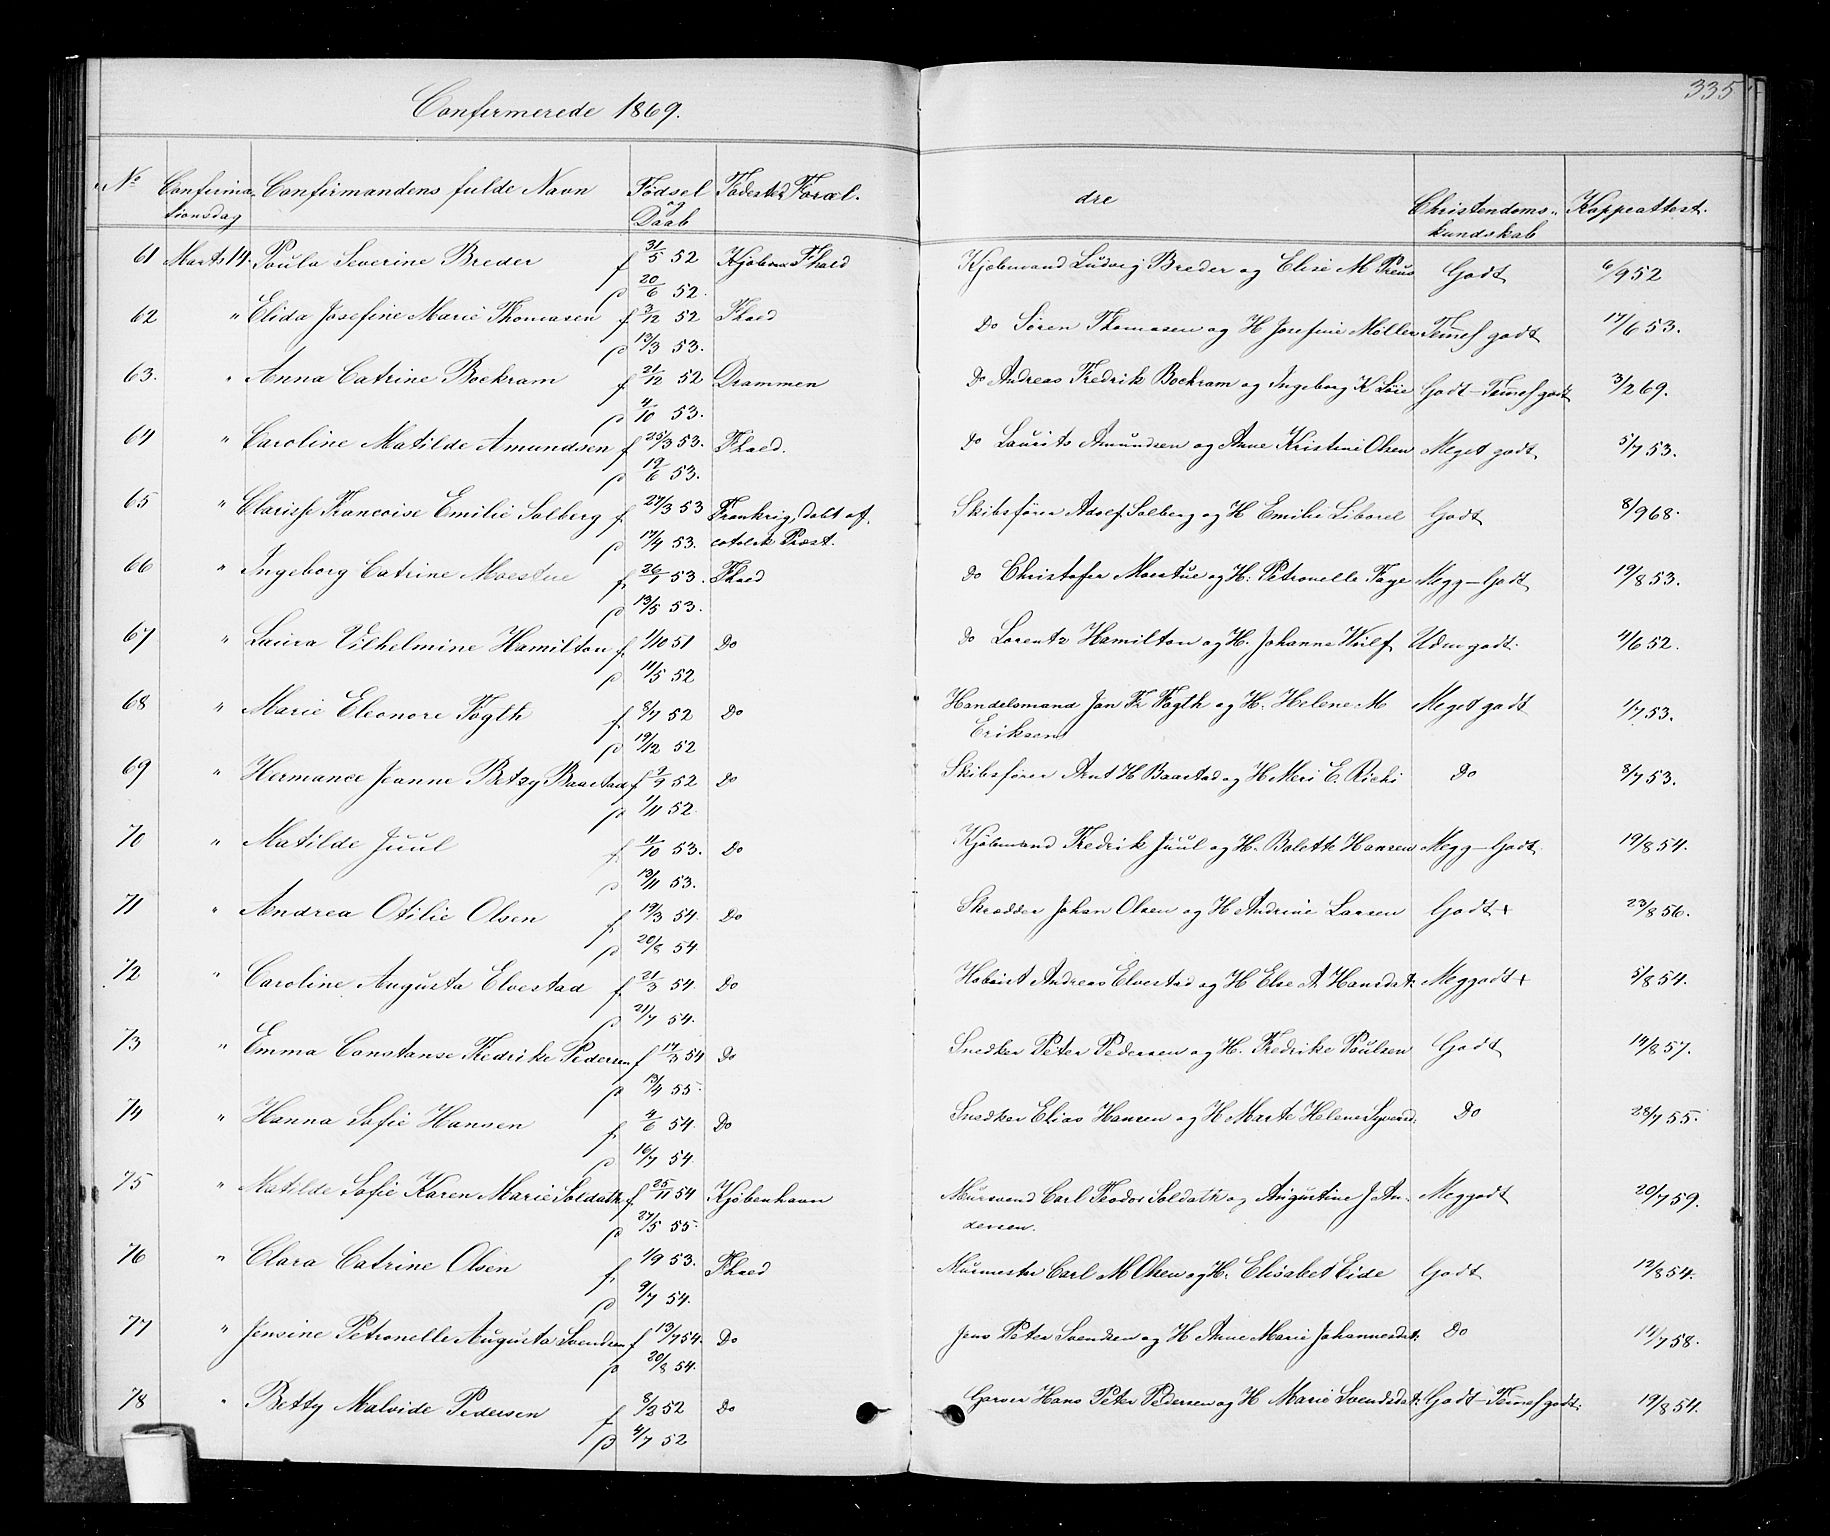 Confirmerede 1869.
335
No Confirma- Confirmandens fulde Navn Fødsel Fødested Foræl- dre Christendoms- Koppeattest.
tionsdag og Daab kundskab
61 Marts 14. Paula Severine Breder f 31/5 52 Kjøbmand Ludvig Breder og Elise M Preus Godt 6/9 52
p 20/6 52.
62 " Elida Josefine Marie Thomasen f 3/12 52 Fhald Do Søren Thomasen og H Josefine Møller Temel godt 17/6 53.
p 13/3 53.
63. " Anna Catrine Bockram f 21/12 52 Drammen Do Andreas Fredrik Bockram og Ingeborg K Løie Godt - Temel godt 3/2 69.
p 4/10 53.
64 " Caroline Matilde Amundsen f 25/3 53. Fhald. do Laurits Amundsen og Anne Kristine Olsen Meget godt 5/7 53.
p 19/6 53.
65 " Clarisse Francoise Emilie Solberg f 27/3 53 Frankrig, døbt af Skibsfører Adolf Solberg og H Emilie Liborel Godt 8/9 68.
p 17/4 53. catolsk Præst.
66 " Ingeborg Catrine Moestue f. 26/1 53. Fhald do Christofer Moestue og H. Petronelle Faye Megg - Godt 19/8 53.
p 13/5 53.
67 " Laura Vilhelmine Hamilton f. 1/10 51 Do do Lorentz Hamilton og H. Johanne Wulf Udm godt. 4/6 52.
p 11/5 52
68 " Marie Eleonore Fogth f. 8/7 52 Do Handelsmand Jan Fr Fogth og H. Helene M Meget godt 1/7 53.
p 19/12 52 Eriksen
69 " Hermance Jeanne Betzy Baastad f 7/9 52 Do Skibsfører Arnt H Baastad og H Meri E. Richi Do 8/7 53.
p 1/11 52.
70 " Matilde Juul f. 11/10 53. Do Kjøbmand Fredrik Juul og H. Bolette Hansen Megg - Godt. 19/8 54.
p 13/11 53.
71 " Andrea Otilie Olsen f. 19/3 54. Do Skrædder Johan Olsen og H Andrine Larsen Godt + 23/8 56.
p 20/8 54.
72 " Caroline Augusta Elvestad f. 21/3 54. Do Andreas Elvestad og H Else A Hansdat: Meggodt + 5/8 54.
p 21/7 54.
73 " Emma Constanse Fredrike Pedersen f 17/3 54 Do Snedker Peter Pedersen og H. Fredrike Paulsen Godt 14/8 57.
p 13/4 55.
74 " Hanna Sofie Hansen f. 4/6 54. Do Snedker Elias Hansen og H Marte Helene Do 28/7 55.
p 16/7 54.
75 " Matilde Sofie Karen Marie Soldath f. 25/11 54 Kjøbenhavn Mursvend Carl Teodor Soldath og Augustine J An- Meggodt 20/7 59.
p 27/5 55. dersen.
76 " Clara Catrine Olsen f. 1/9 53. Fhald Murmester Carl M Olsen og H. Elisabet Eide Godt 12/8 54.
p 9/7 54.
77 " Jensine Petronelle Augusta Svendsen f 13/7 54. Do Jens Peter Svendsen og H Anne Marie Johannesdat: Do 14/7 58.
p 20/8 54.
78 " Betty Malvide Pedersen f 8/2 52 Do Garver Hans Peter Pedersen og H Marie Svendsdat: Godt - Temel godt. 19/8 54.
p 4/7 52